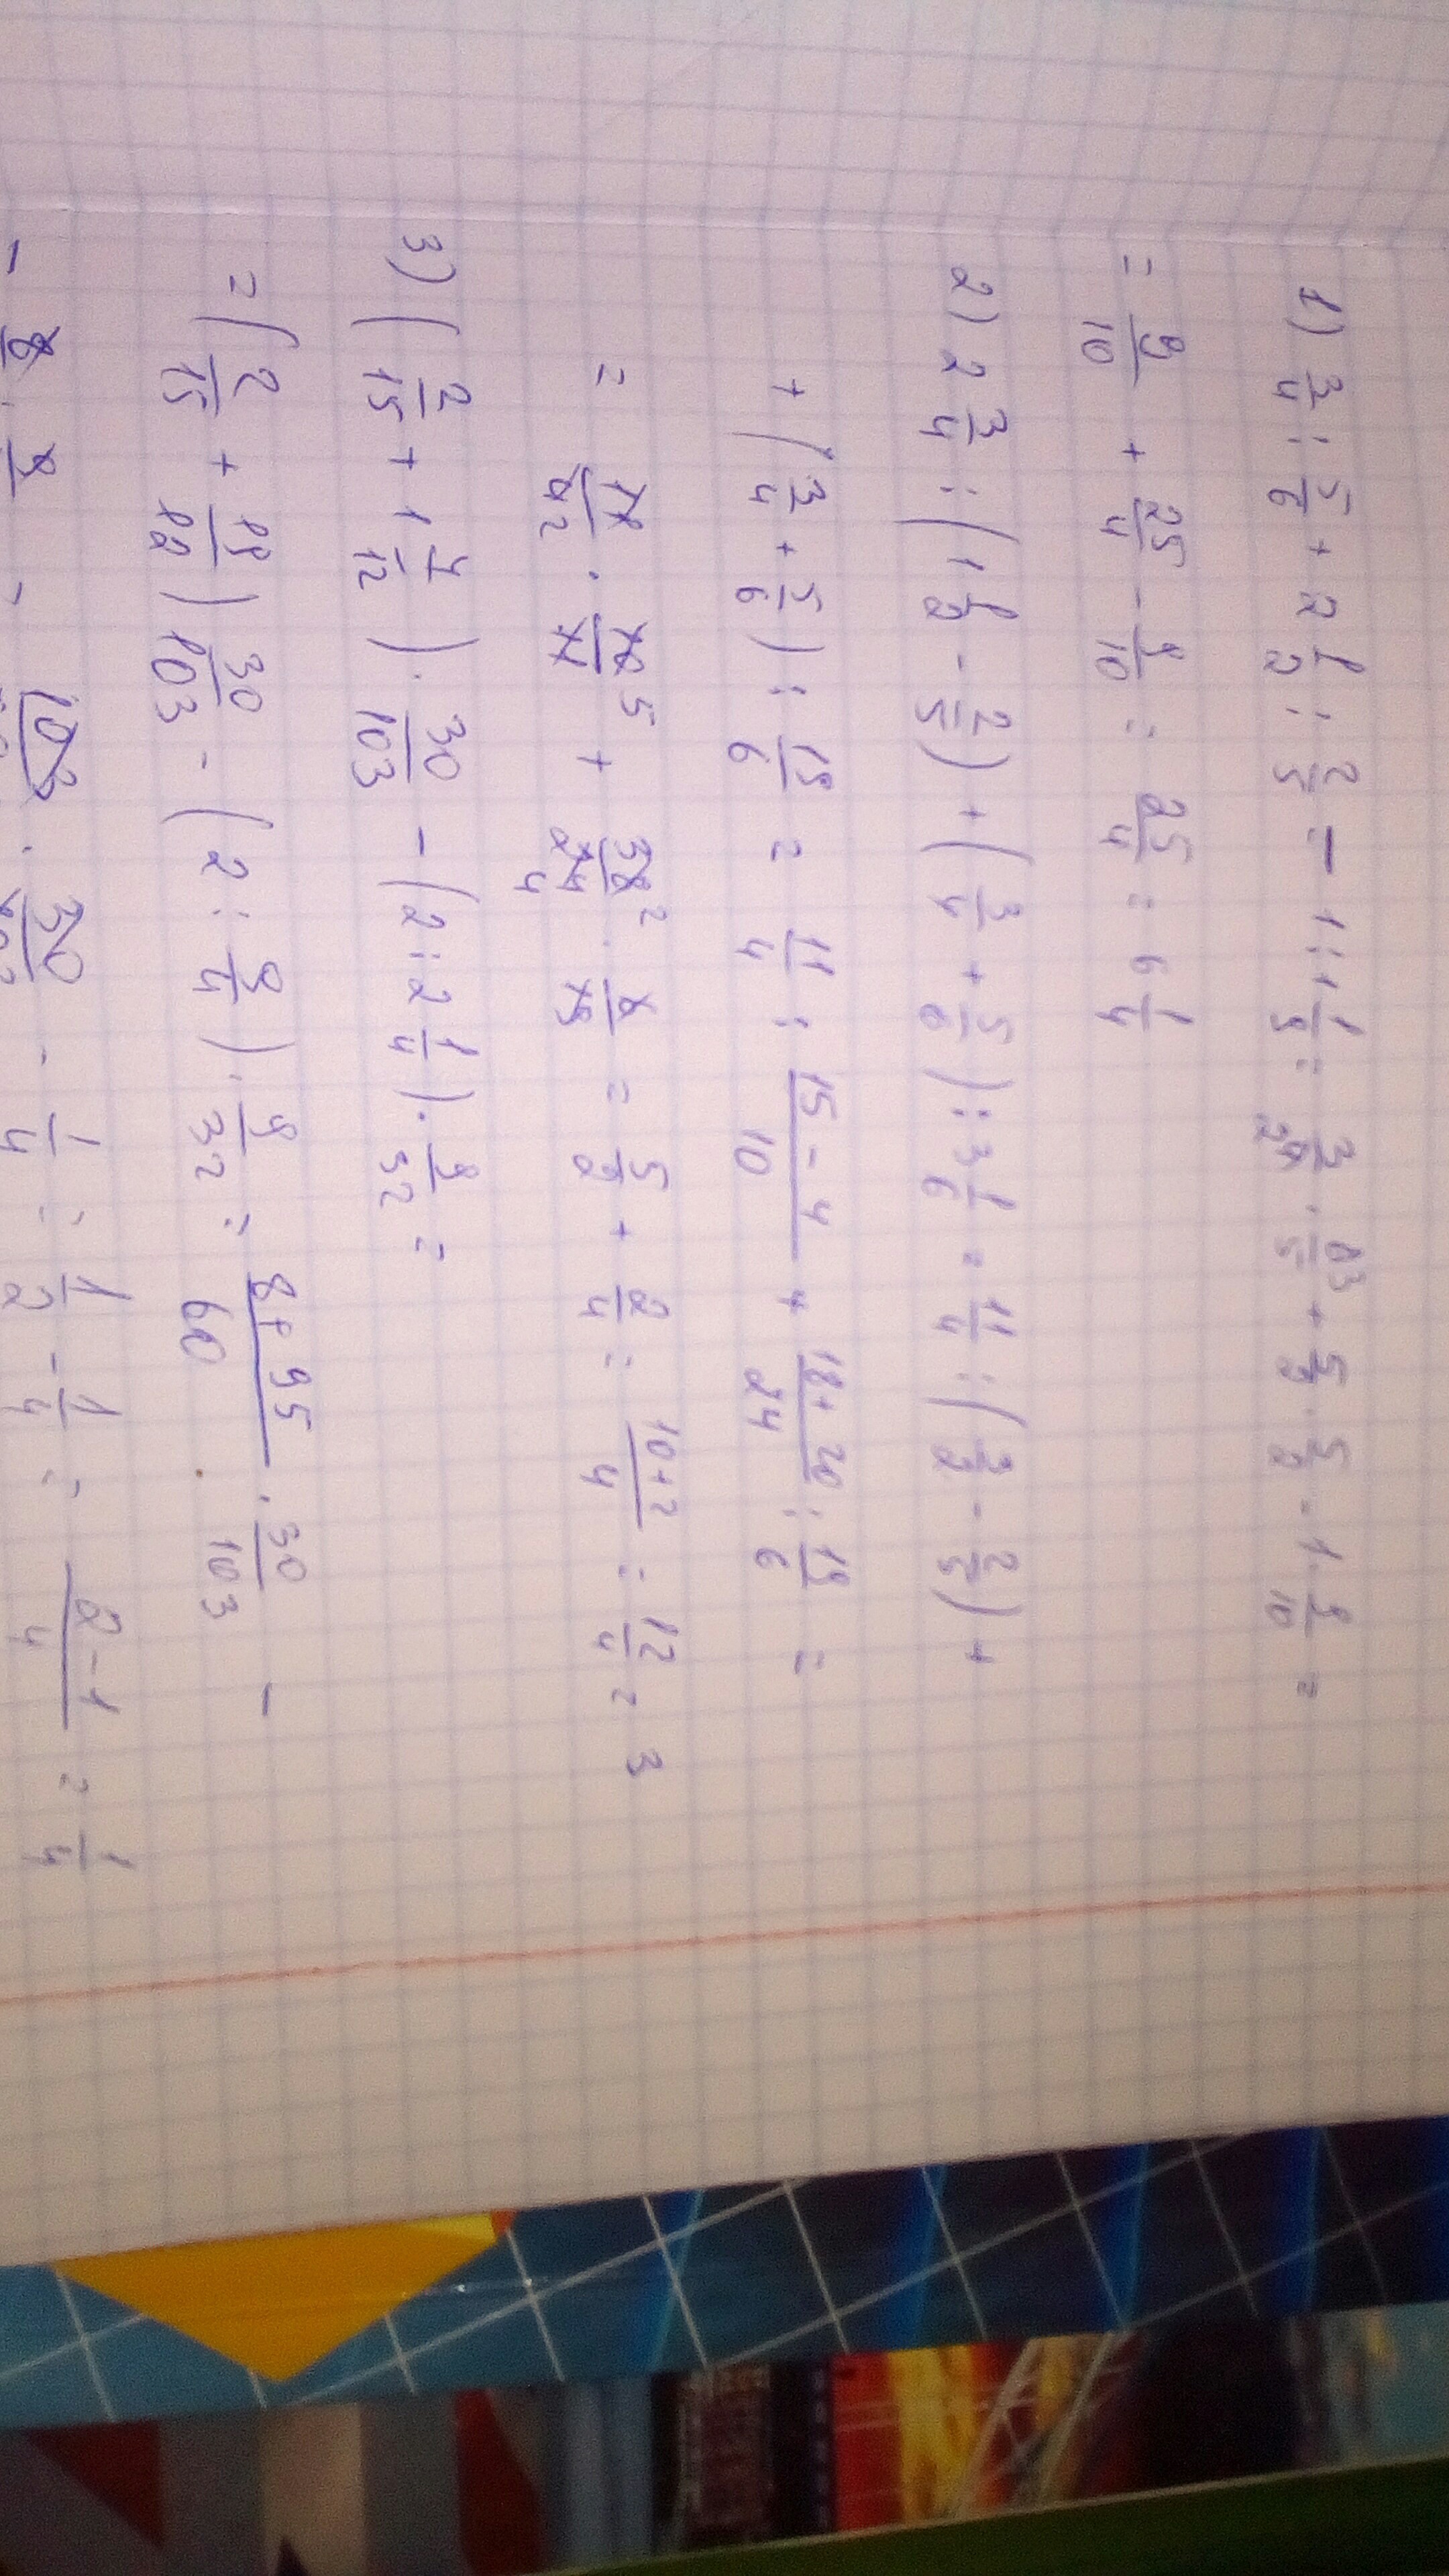 1) 3/4 : 5/6 + 2 1/2 : 2/5 - 1 : 1 1/9 = 3/4 2 · 6 3/5 + 5/2 · 5/2 - 1 · 9/10 =
= 9/10 + 25/4 - 9/10 = 25/4 = 6 1/4
2) 2 3/4 : (1 1/2 - 2/5) + (3/4 + 5/6) : 3 1/6 = 11/4 : (3/2 - 2/5) +
+ (3/4 + 5/6) : 19/6 = 11/4 : 15-4/10 + 18+20/24 : 19/6 =
= 11/4 2 · 10 5/11 + 38 2/24 4 · 6/19 = 5/2 + 2/4 = 10+2/4 = 12/4 = 3
3) (2/15 + 1 7/12) · 30/103 - (2 : 2 1/4) · 9/32 =
= (2/15 + 19/12) 30/103 - (2 : 9/4) · 9/32 = 8+95/60 · 30/103 -
- 8 · 9 = 103 · 30 - 1/4 = 1/2 - 1/4 = 2-1/4 = 1/4